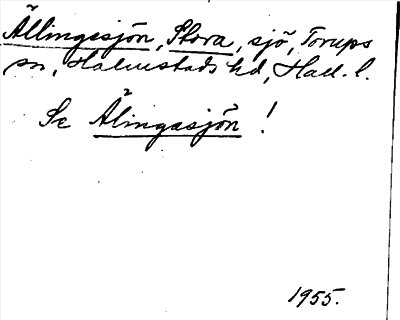 Ällingasjön, Stora, sjö, Torups
sn, Halmstads hd, Hall. l.
Se Älingasjön!
1955.